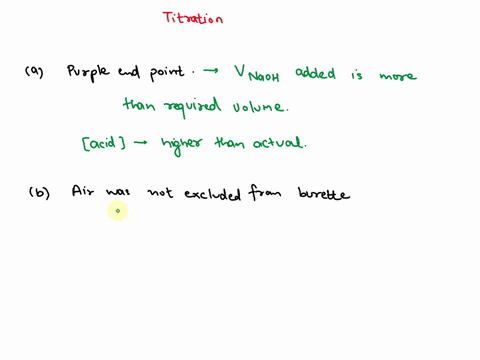 Titration
(a) Purple end point. → V NaOH added is more
than required volume.
[acid] → higher than actual.
(b) Air was not excluded from burette